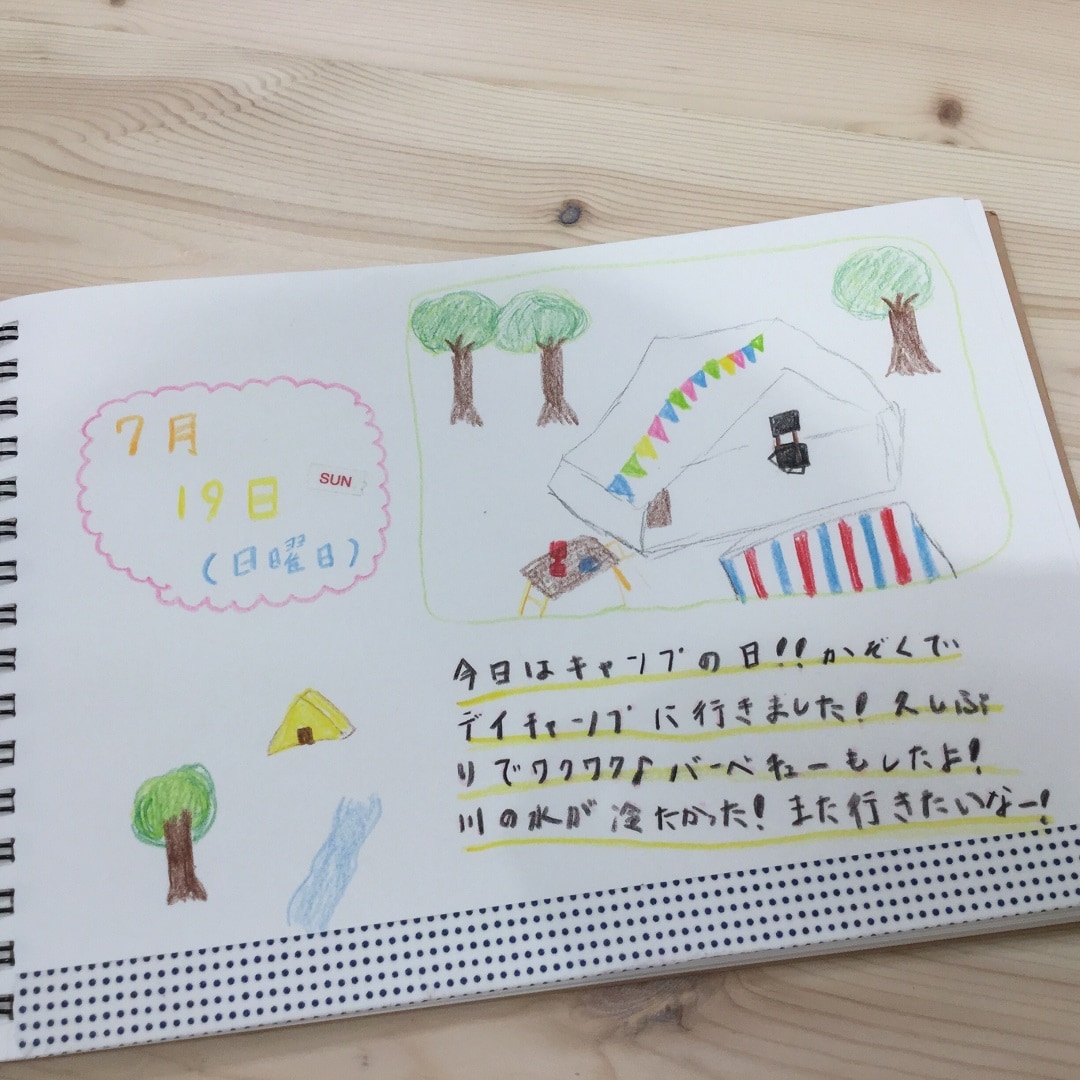 7月
19日
SUN
(日曜日)
今日はキャンプの日!!かぞくで
デイキャンプに行きました!久しぶ
りでワクワク♪バーベキューもしたよ!
川の水が冷たかった!また行きたいなー!